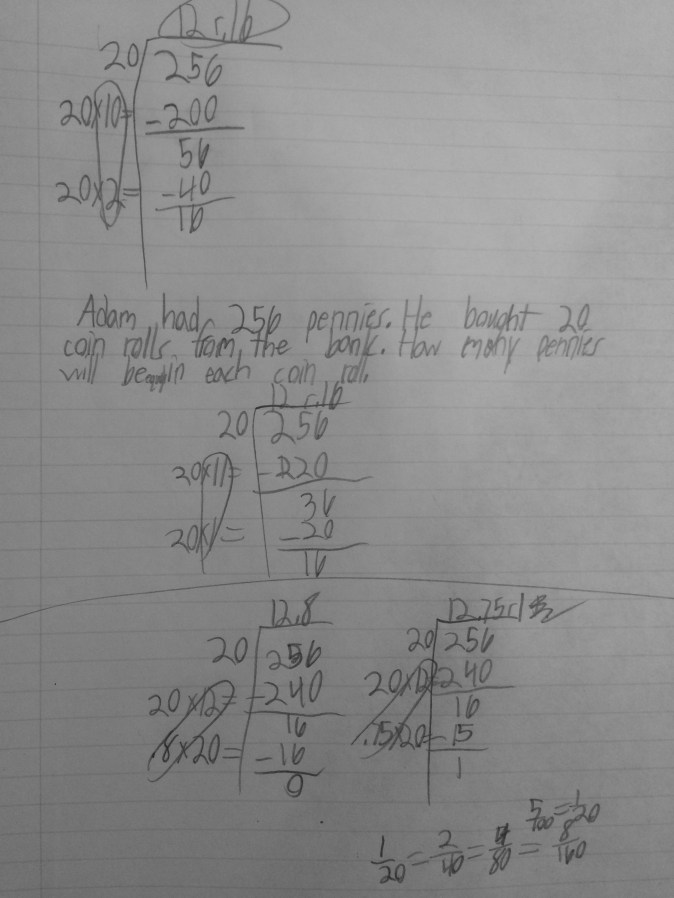 12 r.16
20 256
20×10= -200
56
20×2= -40
16
Adam had 256 pennies. He bought 20
coin rolls from the bank. How many pennies
will be equally in each coin roll.
12 r.16
20 256
20×11= -220
36
20×1= -20
16
12.8
20 256
20×12= -240
16
.8×20= -16
0
12.75 r1
20 256
20×12= 240
16
.75×20= -15
1
5/100 = 1/20
1/20 = 2/40 = 4/80 = 8/160